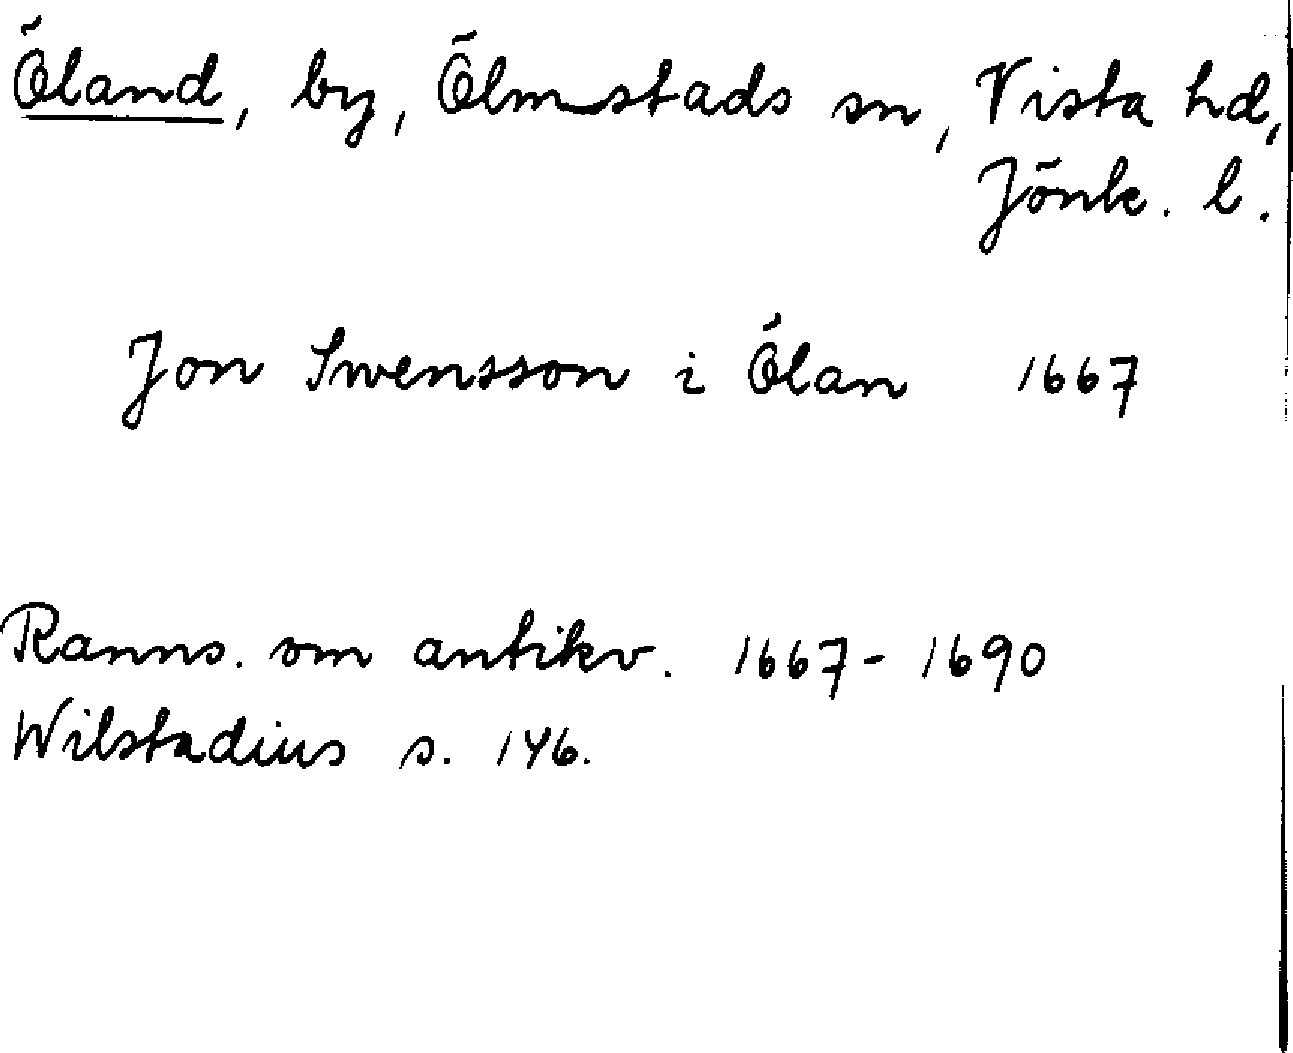 Öland, by, Ölmstads sn, Vista hd,
Jönk. l.
Jon Swensson i Ölan 1667
Ranns. om antikv. 1667-1690
Wilstadius s. 146.